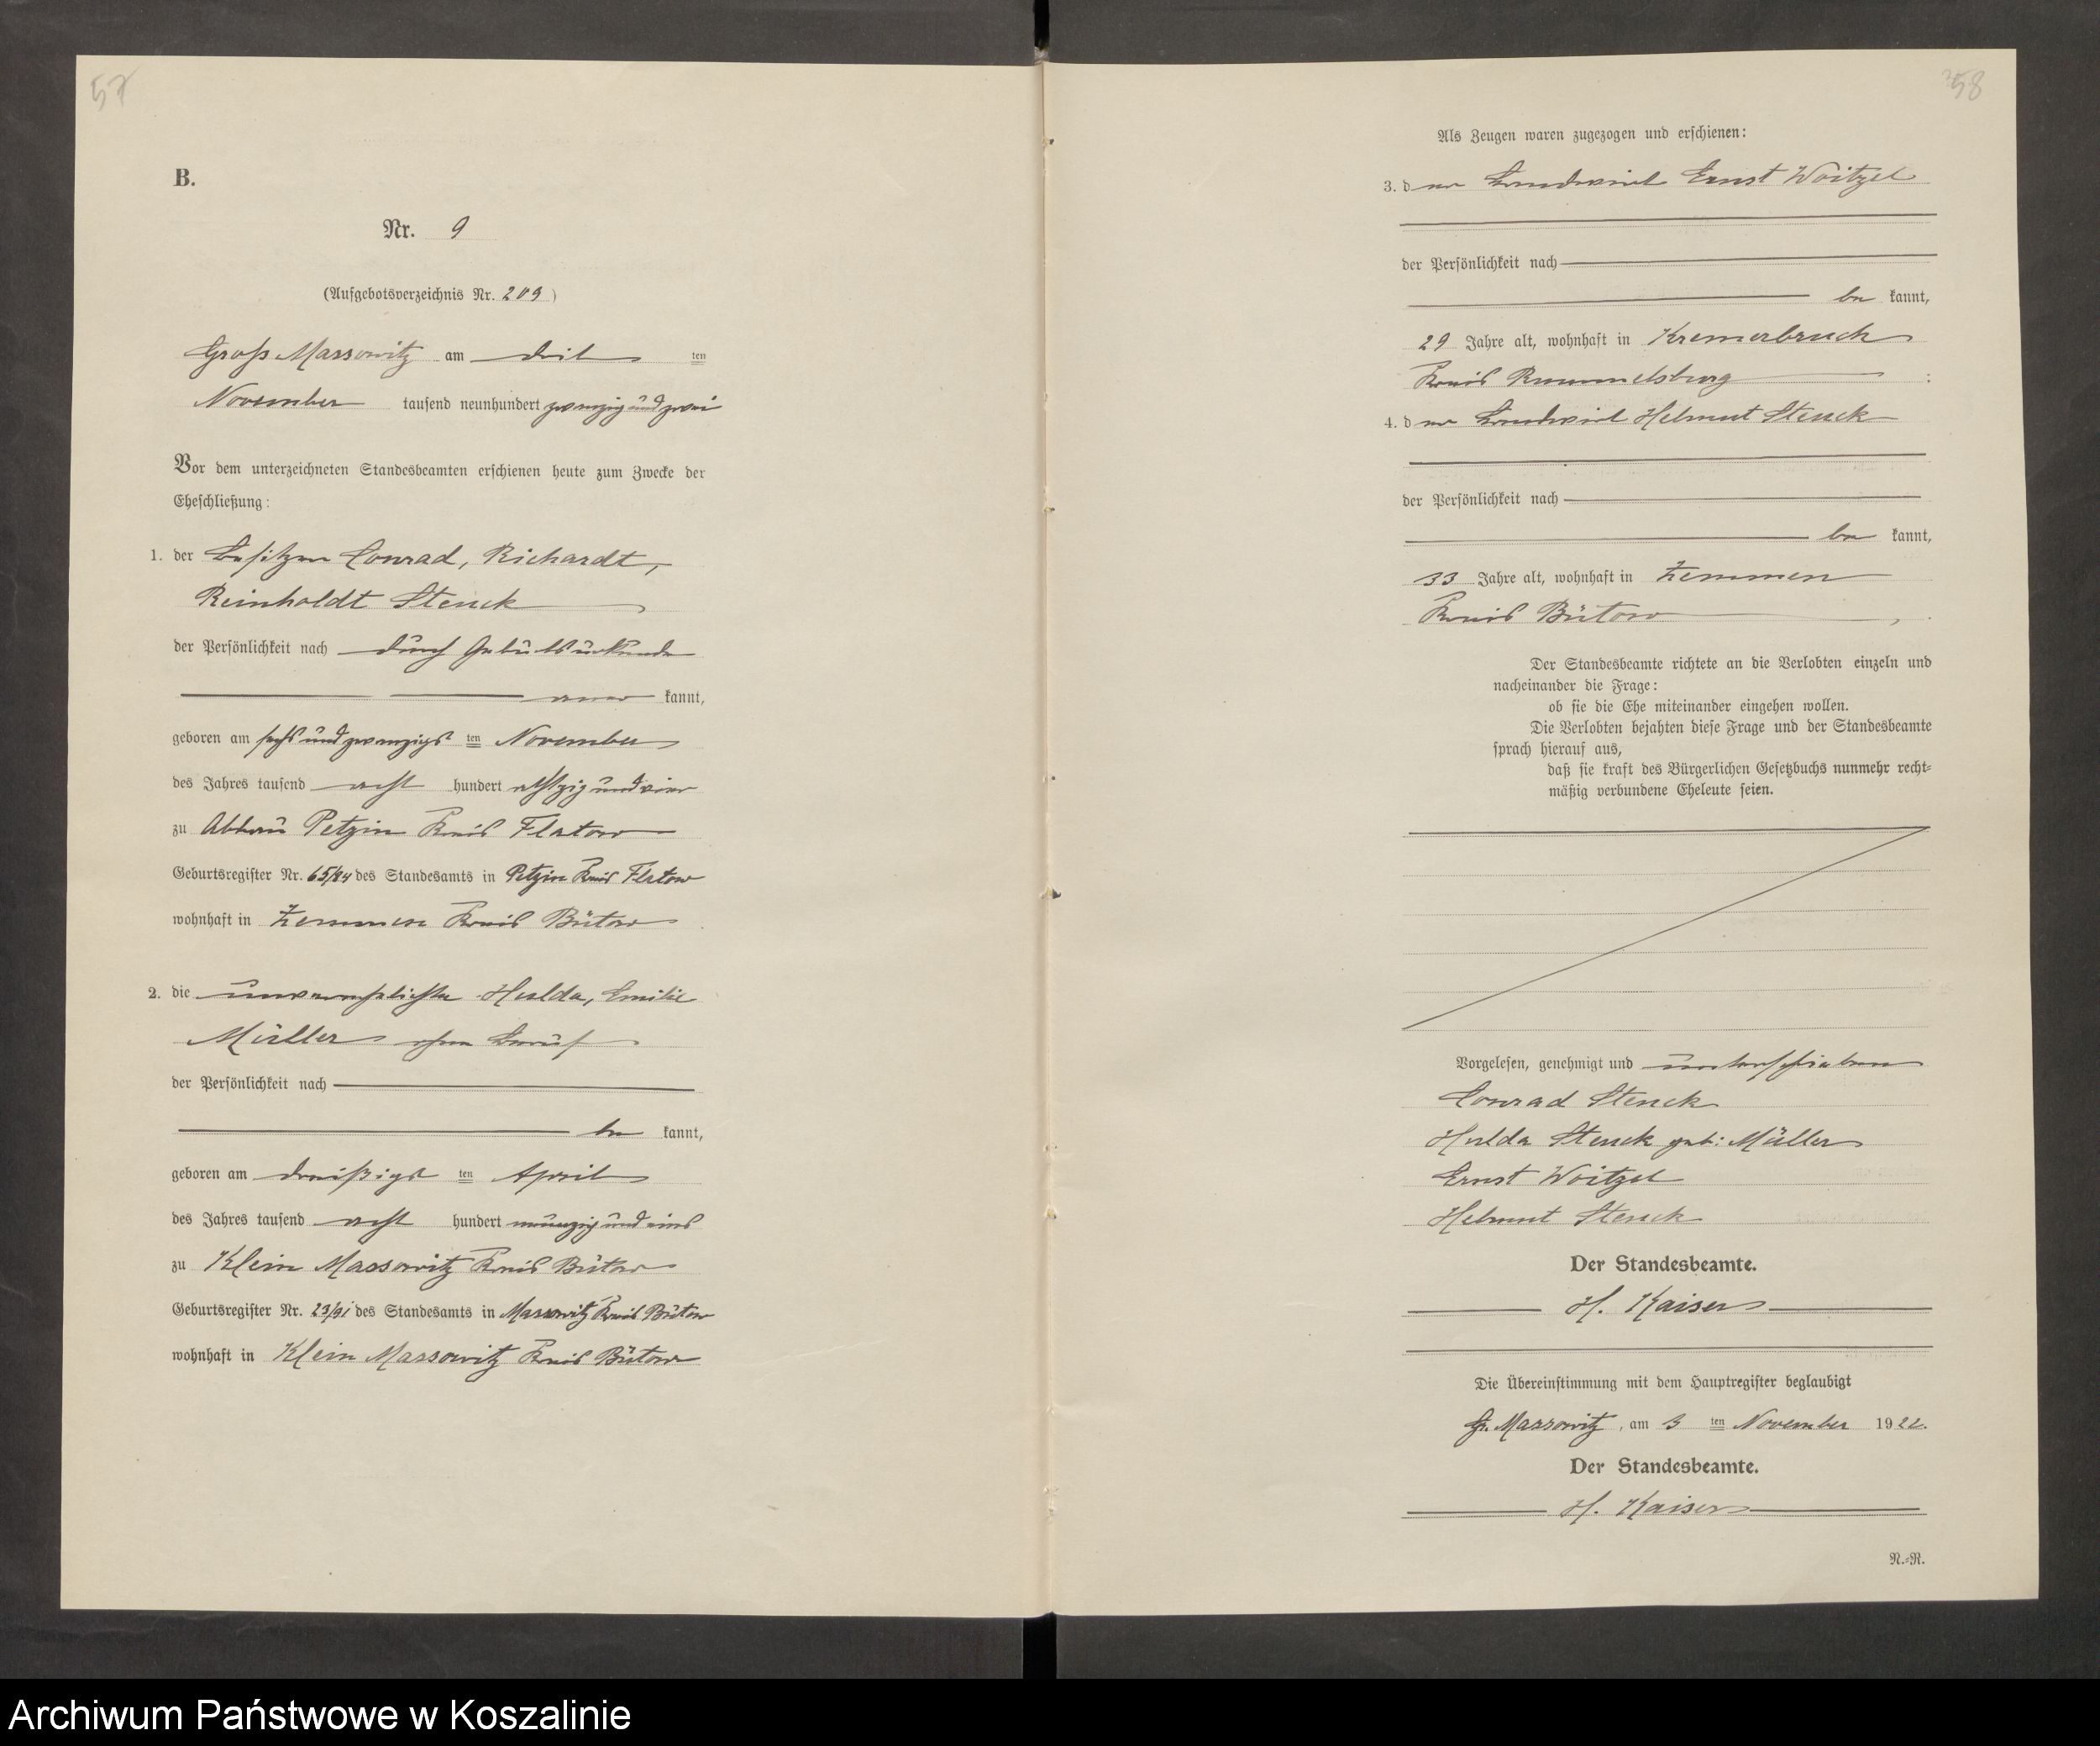 57
B.
Nr. 9
(Aufgebotsverzeichnis Nr. 209)
Groß Massowitz am drit ten
November tausend neunhundert zwanzig und zwei
Vor dem unterzeichneten Standesbeamten erschienen heute zum Zwecke der
Eheschließung:
1. der Besitzer Conrad, Richardt,
Reinholdt Stenck
der Persönlichkeit nach durch Geburtsurkunde
aner kannt,
geboren am sechs und zwanzigs ten November
des Jahres tausend acht hundert achtzig und vier
zu Abbau Petzin Kreis Flatow
Geburtsregister Nr. 65/84 des Standesamts in Petzin Kreis Flatow
wohnhaft in Zemmen Kreis Bütow
2. die unverehelichte Hulda, Emilie
Müller ohne Beruf
der Persönlichkeit nach
be kannt,
geboren am dreißigs ten April
des Jahres tausend acht hundert neunzig und eins
zu Klein Massowitz Kreis Bütow
Geburtsregister Nr. 23/91 des Standesamts in Massowitz Kreis Bütow
wohnhaft in Klein Massowitz Kreis Bütow
58
Als Zeugen waren zugezogen und erschienen:
3. der Landwirt Ernst Woitzel
der Persönlichkeit nach
be kannt,
29 Jahre alt, wohnhaft in Kremerbruch
Kreis Rummelsburg ;
4. der Landwirt Helmut Stenck
der Persönlichkeit nach
be kannt,
33 Jahre alt, wohnhaft in Zemmen
Kreis Bütow .
Der Standesbeamte richtete an die Verlobten einzeln und
nacheinander die Frage:
ob sie die Ehe miteinander eingehen wollen.
Die Verlobten bejahten diese Frage und der Standesbeamte
sprach hierauf aus,
daß sie kraft des Bürgerlichen Gesetzbuchs nunmehr recht-
mäßig verbundene Eheleute seien.
Vorgelesen, genehmigt und unterschrieben
Conrad Stenck
Hulda Stenck geb: Müller
Ernst Woitzel
Helmut Stenck
Der Standesbeamte.
H. Kaiser
Die Übereinstimmung mit dem Hauptregister beglaubigt
Gr. Massowitz, am 3 ten November 1922.
Der Standesbeamte.
H. Kaiser
N.-R.
Archiwum Państwowe w Koszalinie